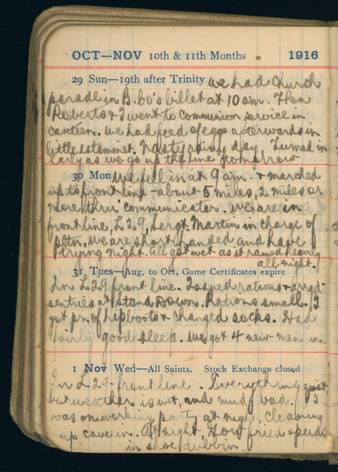 OCT—NOV 10th & 11th Months 1916
29 Sun—19th after Trinity We had Church
parade in B. Co's billet at 10 am. Then
Roberts & I went to communion service in
canteen. We had feed of eggs afterwards in
little estaminet. Nasty rainy day. Turned in
early as we go up the line tomorrow
30 Mon We fell in at 9 am. & marched
up to front line – about 5 miles, 2 miles or
more thru' communicator. We are in
front line, L 29, Sergt. Martin in charge of
pltn, we are short handed and have
trying night. All got wet as it rained heavy
all night.
31 Tues—Aug. to Oct. Game Certificates expire
In L 29 front line. Issued rations &
sentries at Stand Down. Rations small. I
got pr. of hipboots & changed socks. Had
fairly good sleep. We got 4 new men in.
1 Nov Wed—All Saints. Stock Exchange closed
In L 29 front line. Everything quiet
but weather is wet, and mud bad. I
was on working party at night, cleaning
up cavein. At night, fried spuds
in